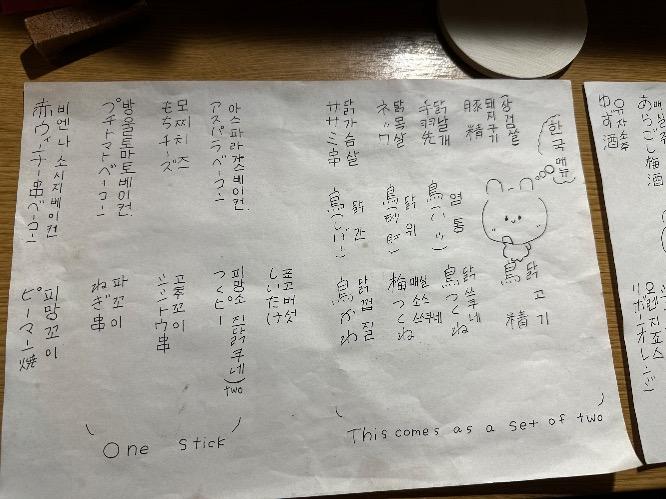 유자술
ゆず酒
あらごし梅酒
오렌지 주스
リボンオレンジ
한국 메뉴
삼겹살
돼지고기
豚精
닭날개
手羽先
닭목살
ネック
닭가슴살
ササミ串
염통
鳥(ハツ)
닭 위
닭 간
鳥(レバー)
닭 고기
鳥 精
닭 쓰쿠네
鳥つくね
매실소스 쓰쿠네
梅つくね
닭껍질
鳥かわ
(This comes as a set of two)
아스파라가스베이컨
アスパラベーコン
모찌치즈
もちチーズ
방울토마토베이컨
プチトマトベーコン
비엔나소시지베이컨
赤ウィンナー串ベーコン
표고버섯
しいたけ
two
つくピー
고추꼬이
シシトウ串
파꼬이
ねぎ串
피망꼬이
ピーマン焼
(One stick)